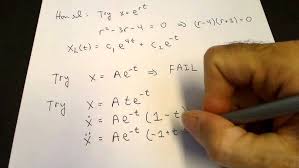 Homog: Try x=e^rt
r²-3r-4=0 ⇒ (r-4)(r+1)=0
x_h(t) = c₁e^4t + c₂e^-t
Try x = Ae^-t ⇒ FAIL
Try x = Ate^-t
ẋ = Ae^-t (1-t)
ẍ = Ae^-t (-1+t